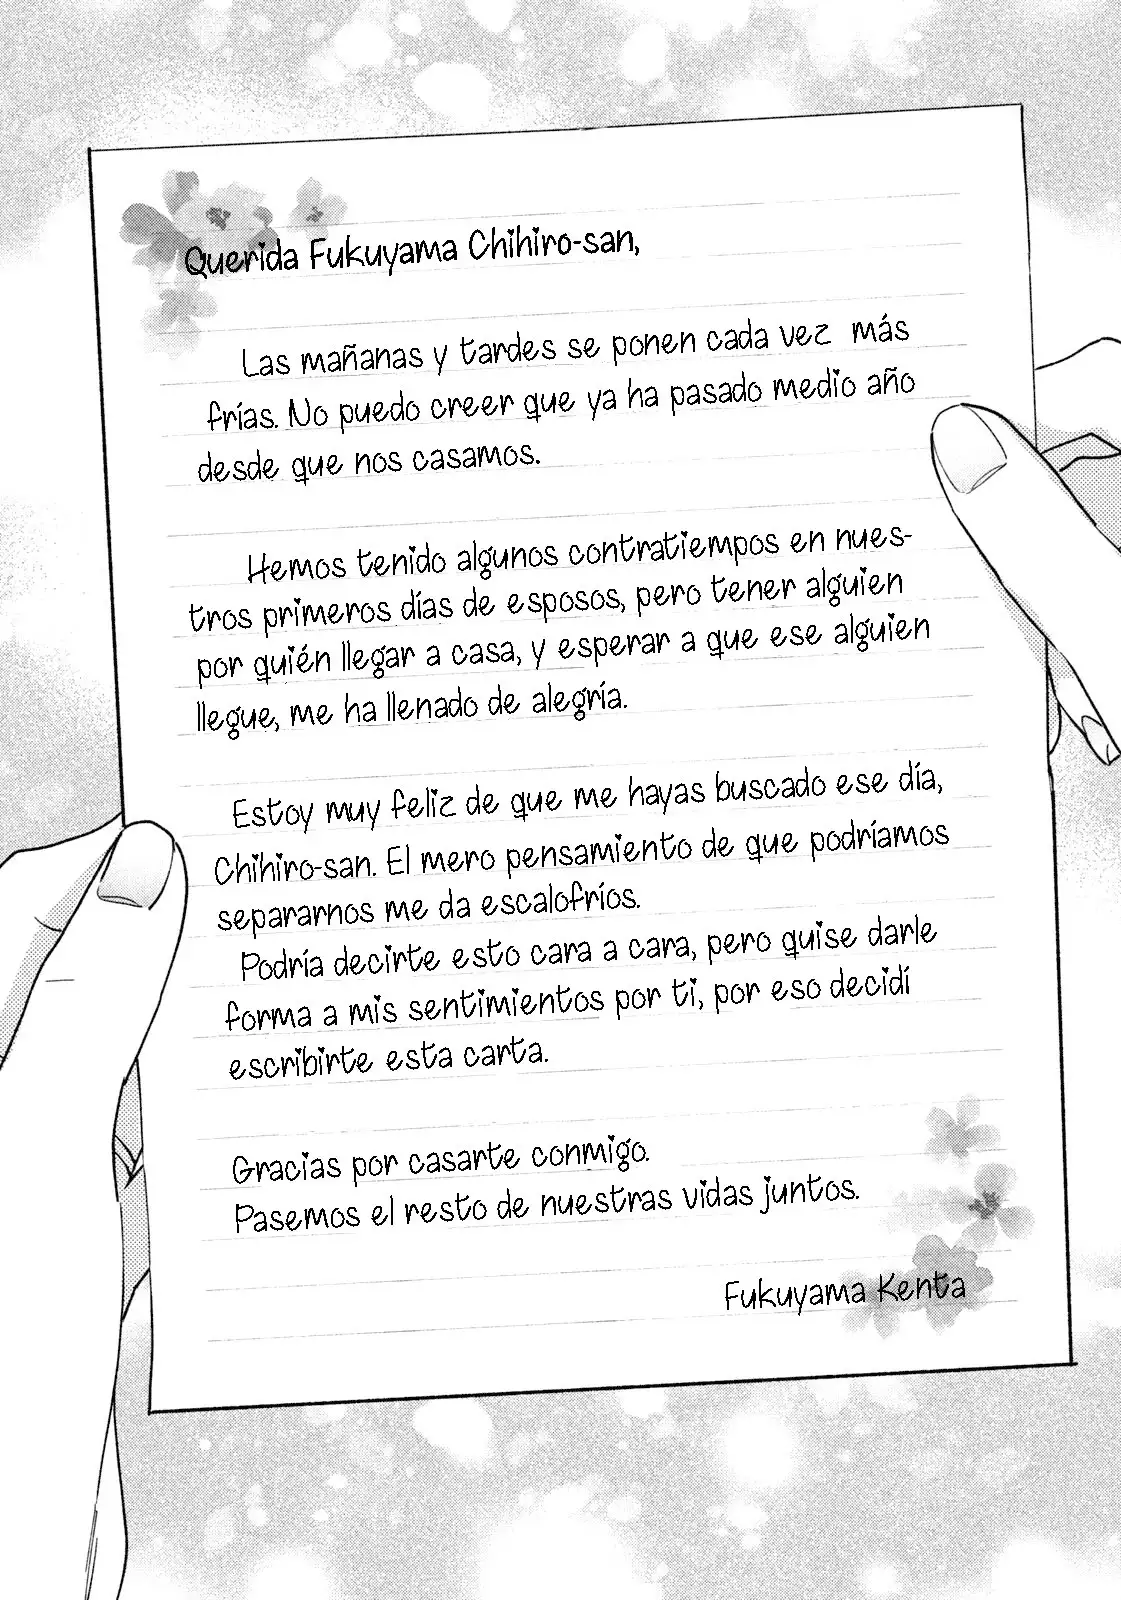 Querida Fukuyama Chihiro-san,
Las mañanas y tardes se ponen cada vez más
frías. No puedo creer que ya ha pasado medio año
desde que nos casamos.
Hemos tenido algunos contratiempos en nues-
tros primeros días de esposos, pero tener alguien
por quién llegar a casa, y esperar a que ese alguien
llegue, me ha llenado de alegría.
Estoy muy feliz de que me hayas buscado ese día,
Chihiro-san. El mero pensamiento de que podríamos
separarnos me da escalofríos.
Podría decirte esto cara a cara, pero quise darle
forma a mis sentimientos por ti, por eso decidí
escribirte esta carta.
Gracias por casarte conmigo.
Pasemos el resto de nuestras vidas juntos.
Fukuyama Kenta